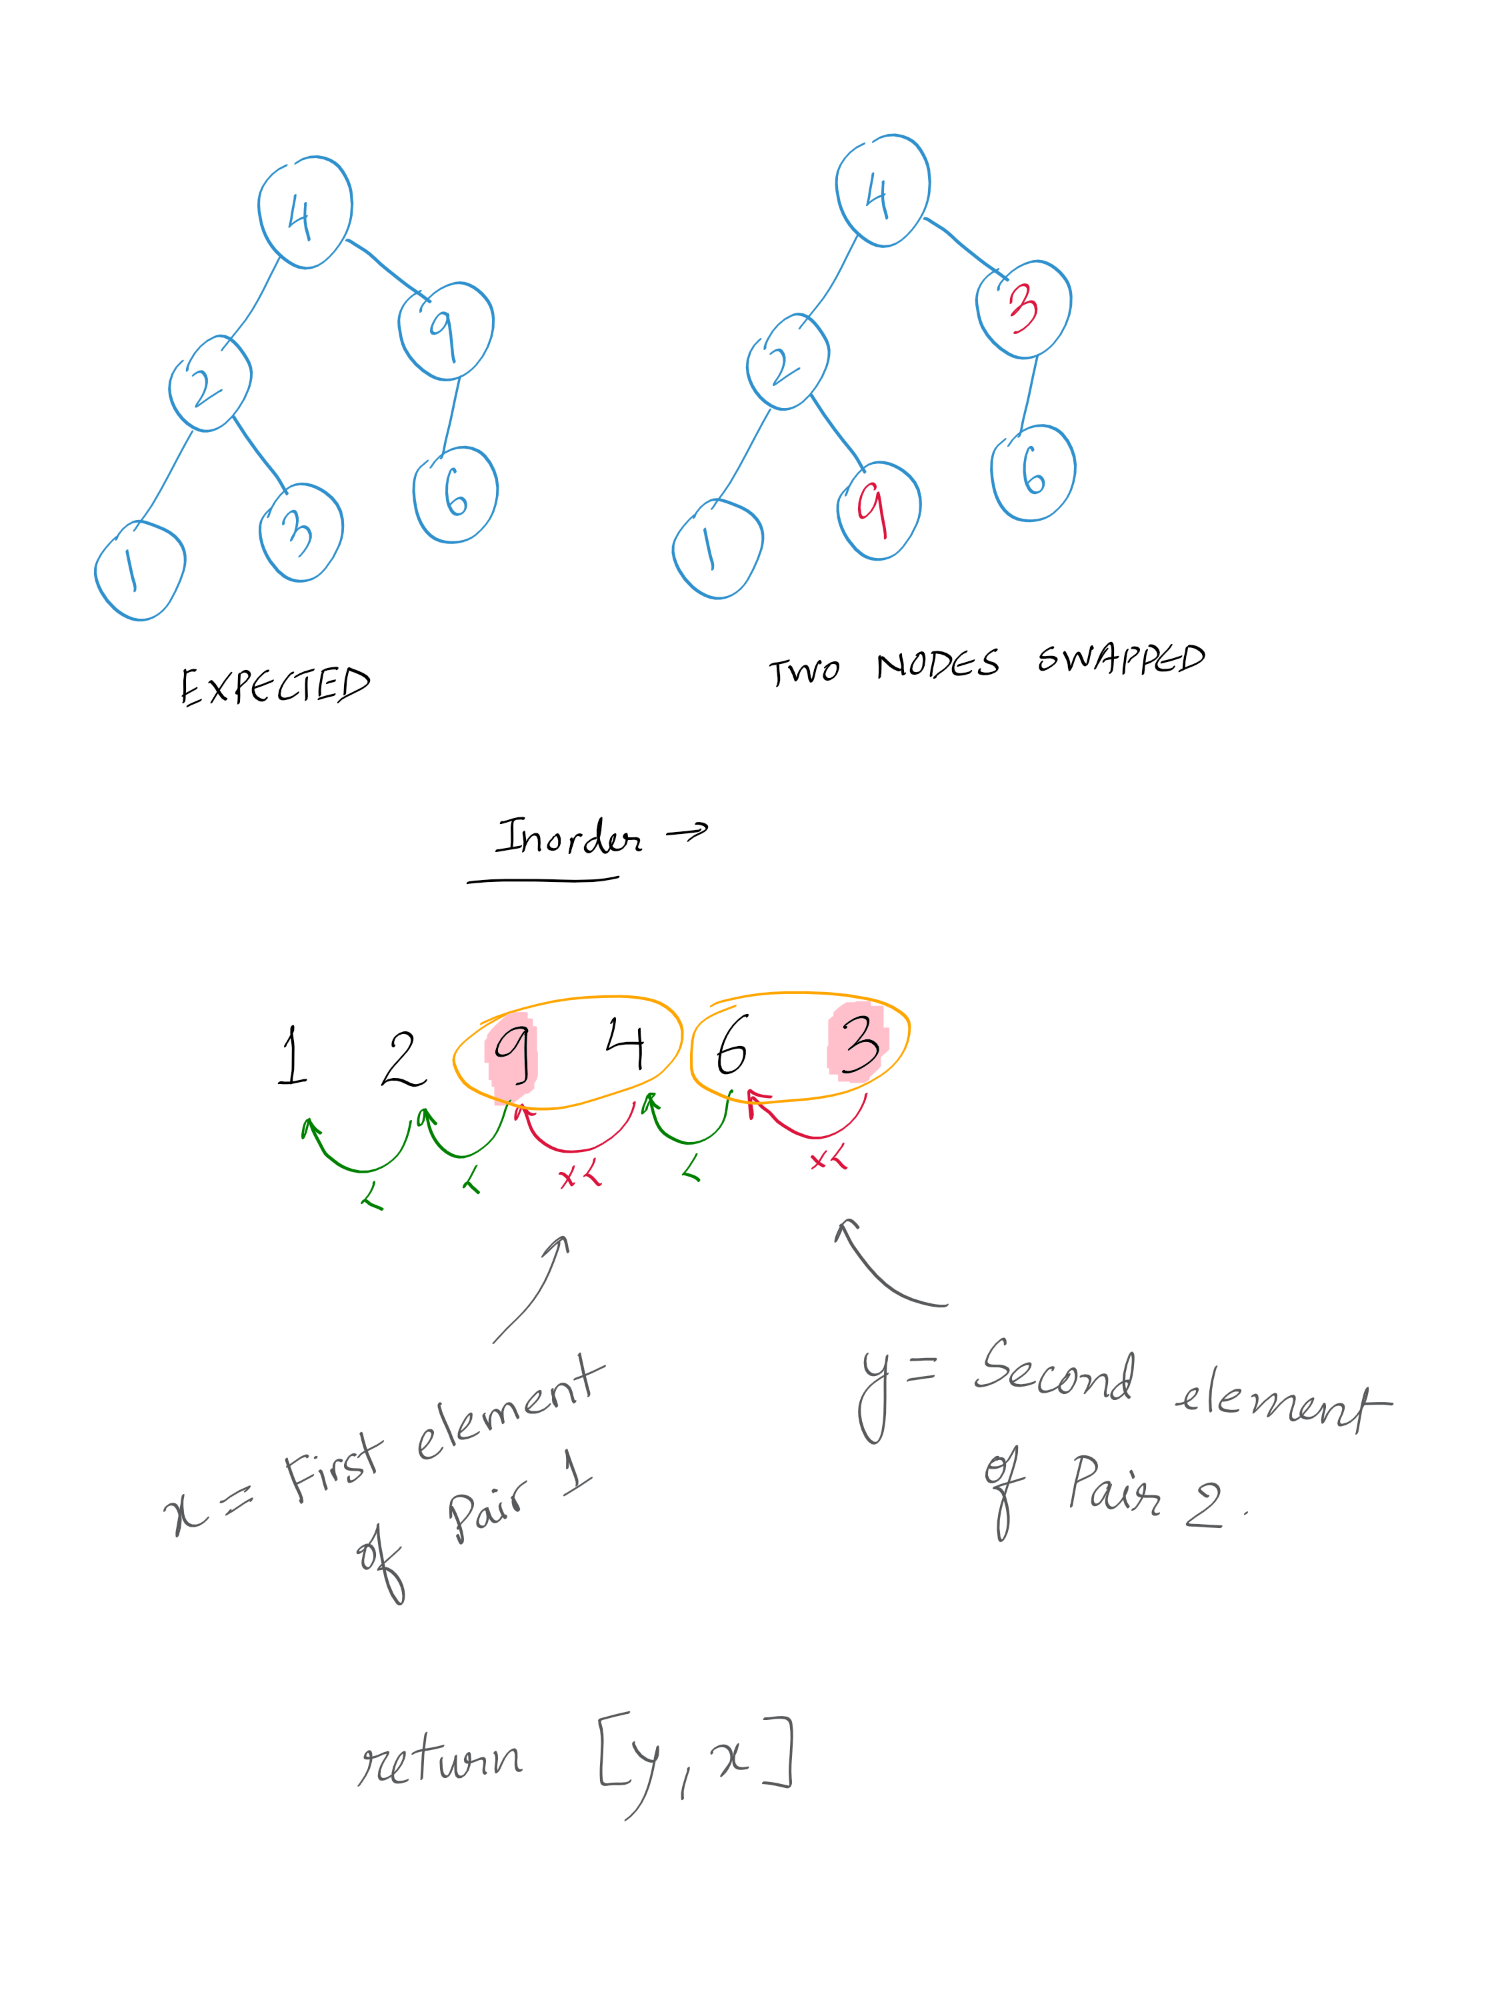 4
9
2
6
3
1
4
3
2
6
9
1
EXPECTED
TWO NODES SWAPPED
Inorder →
1 2 9 4 6 3
< < x< < x<
x = First element
of Pair 1
y = Second element
of Pair 2.
return [y, x]